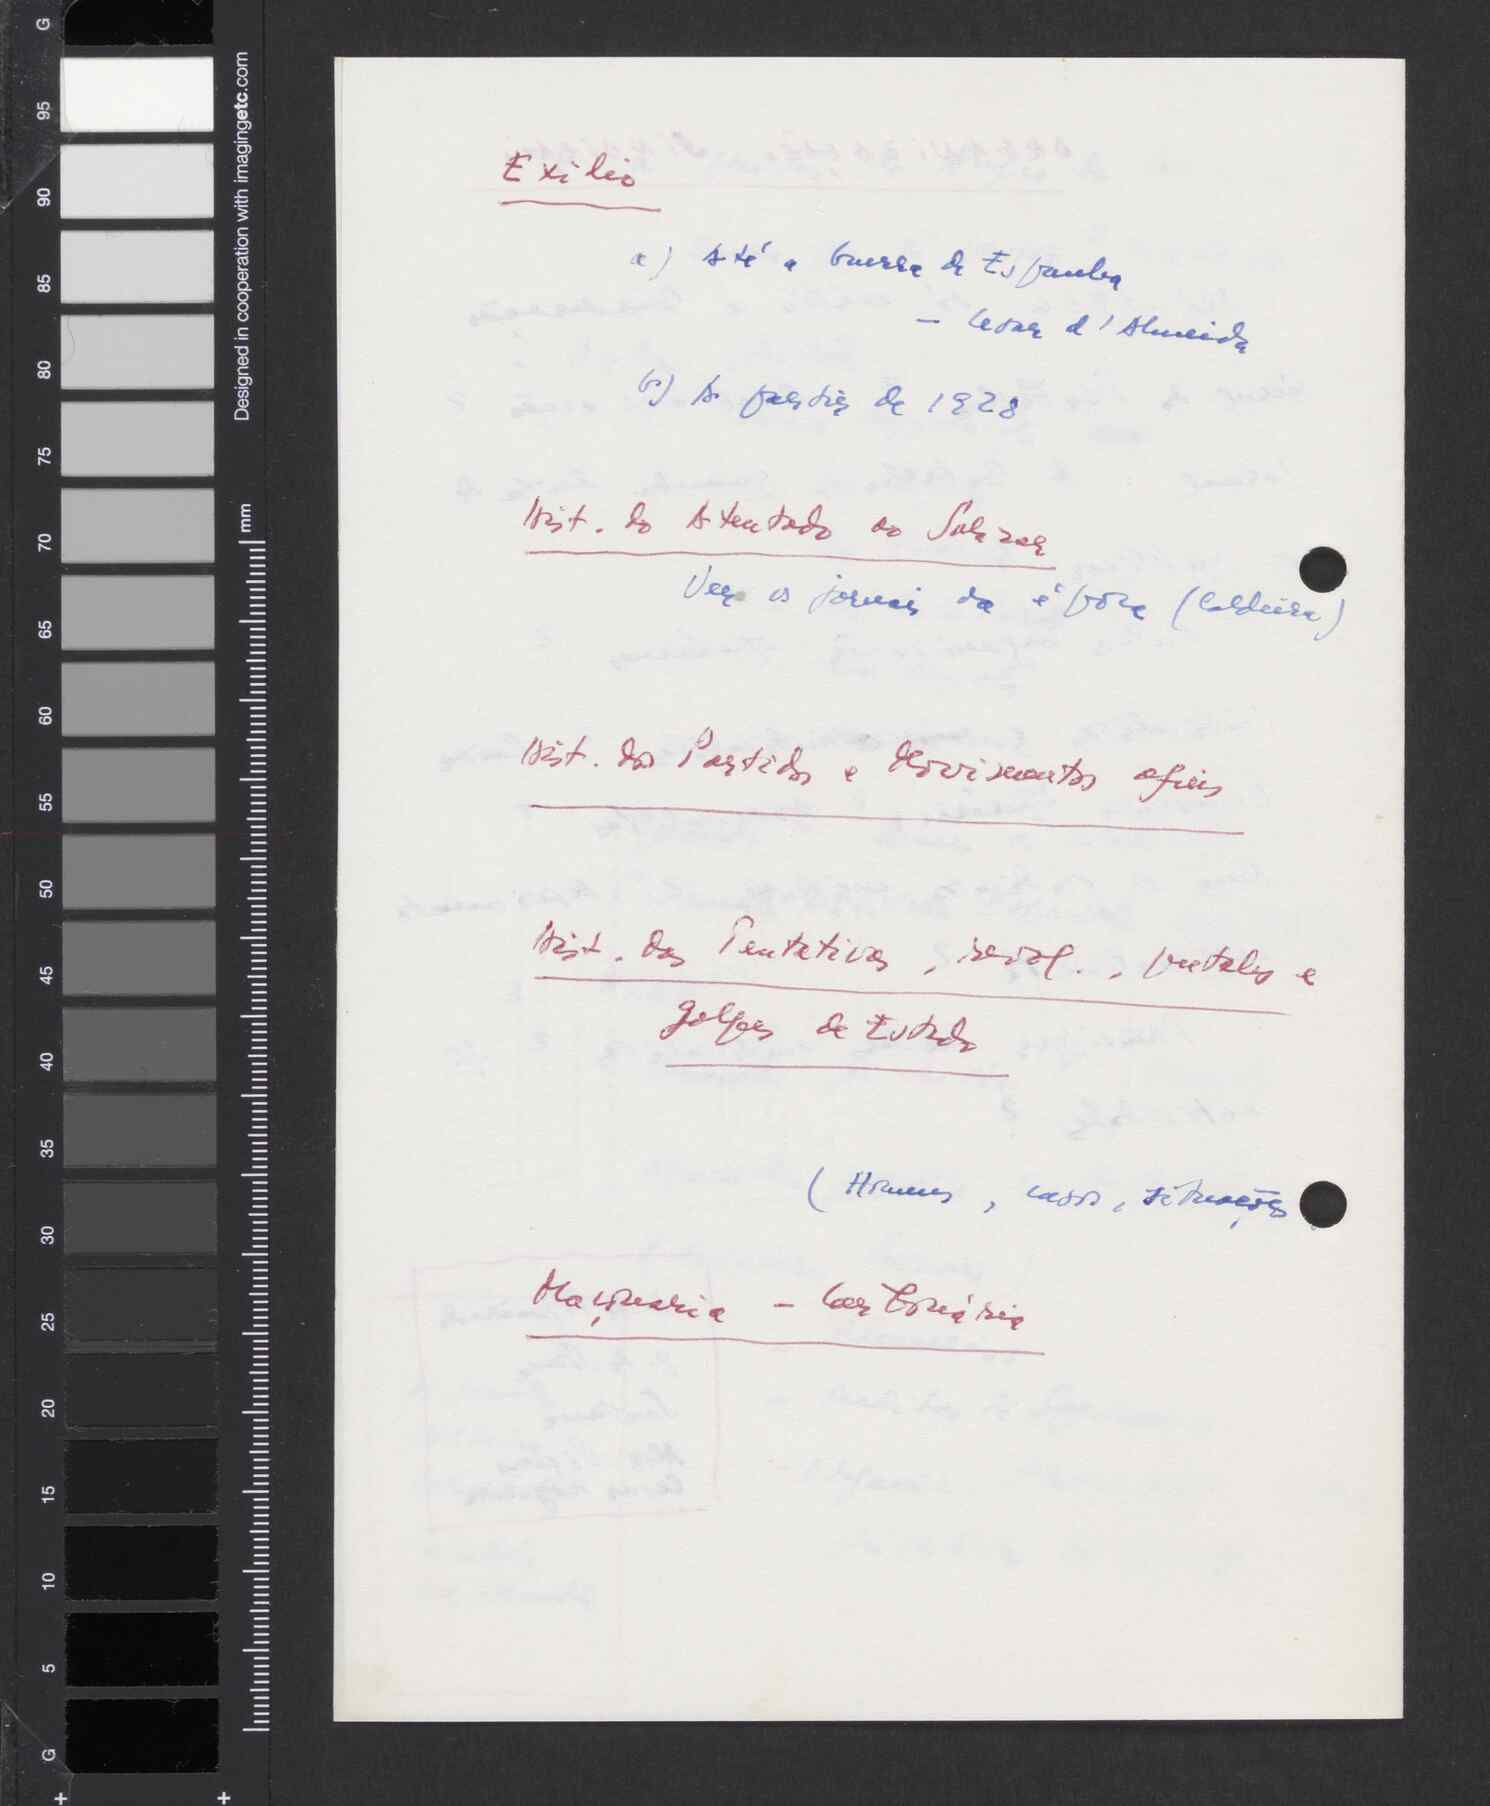 Exílio
a) Até a Guerra de Espanha
- Cesar d'Almeida
b) A partir de 1928
Hist. do Atentado ao Salazar
Ver os jornais da época (Caldeira)
Hist. dos Partidos e Movimentos afins
Hist. das Tentativas, revol., putchs e
golpes de Estado
(Homens, casos, situações
Maçonaria - Carbonária
Designed in cooperation with imagingetc.com
mm
G
95
90
85
80
75
70
65
60
55
50
45
40
35
30
25
20
15
10
5
G